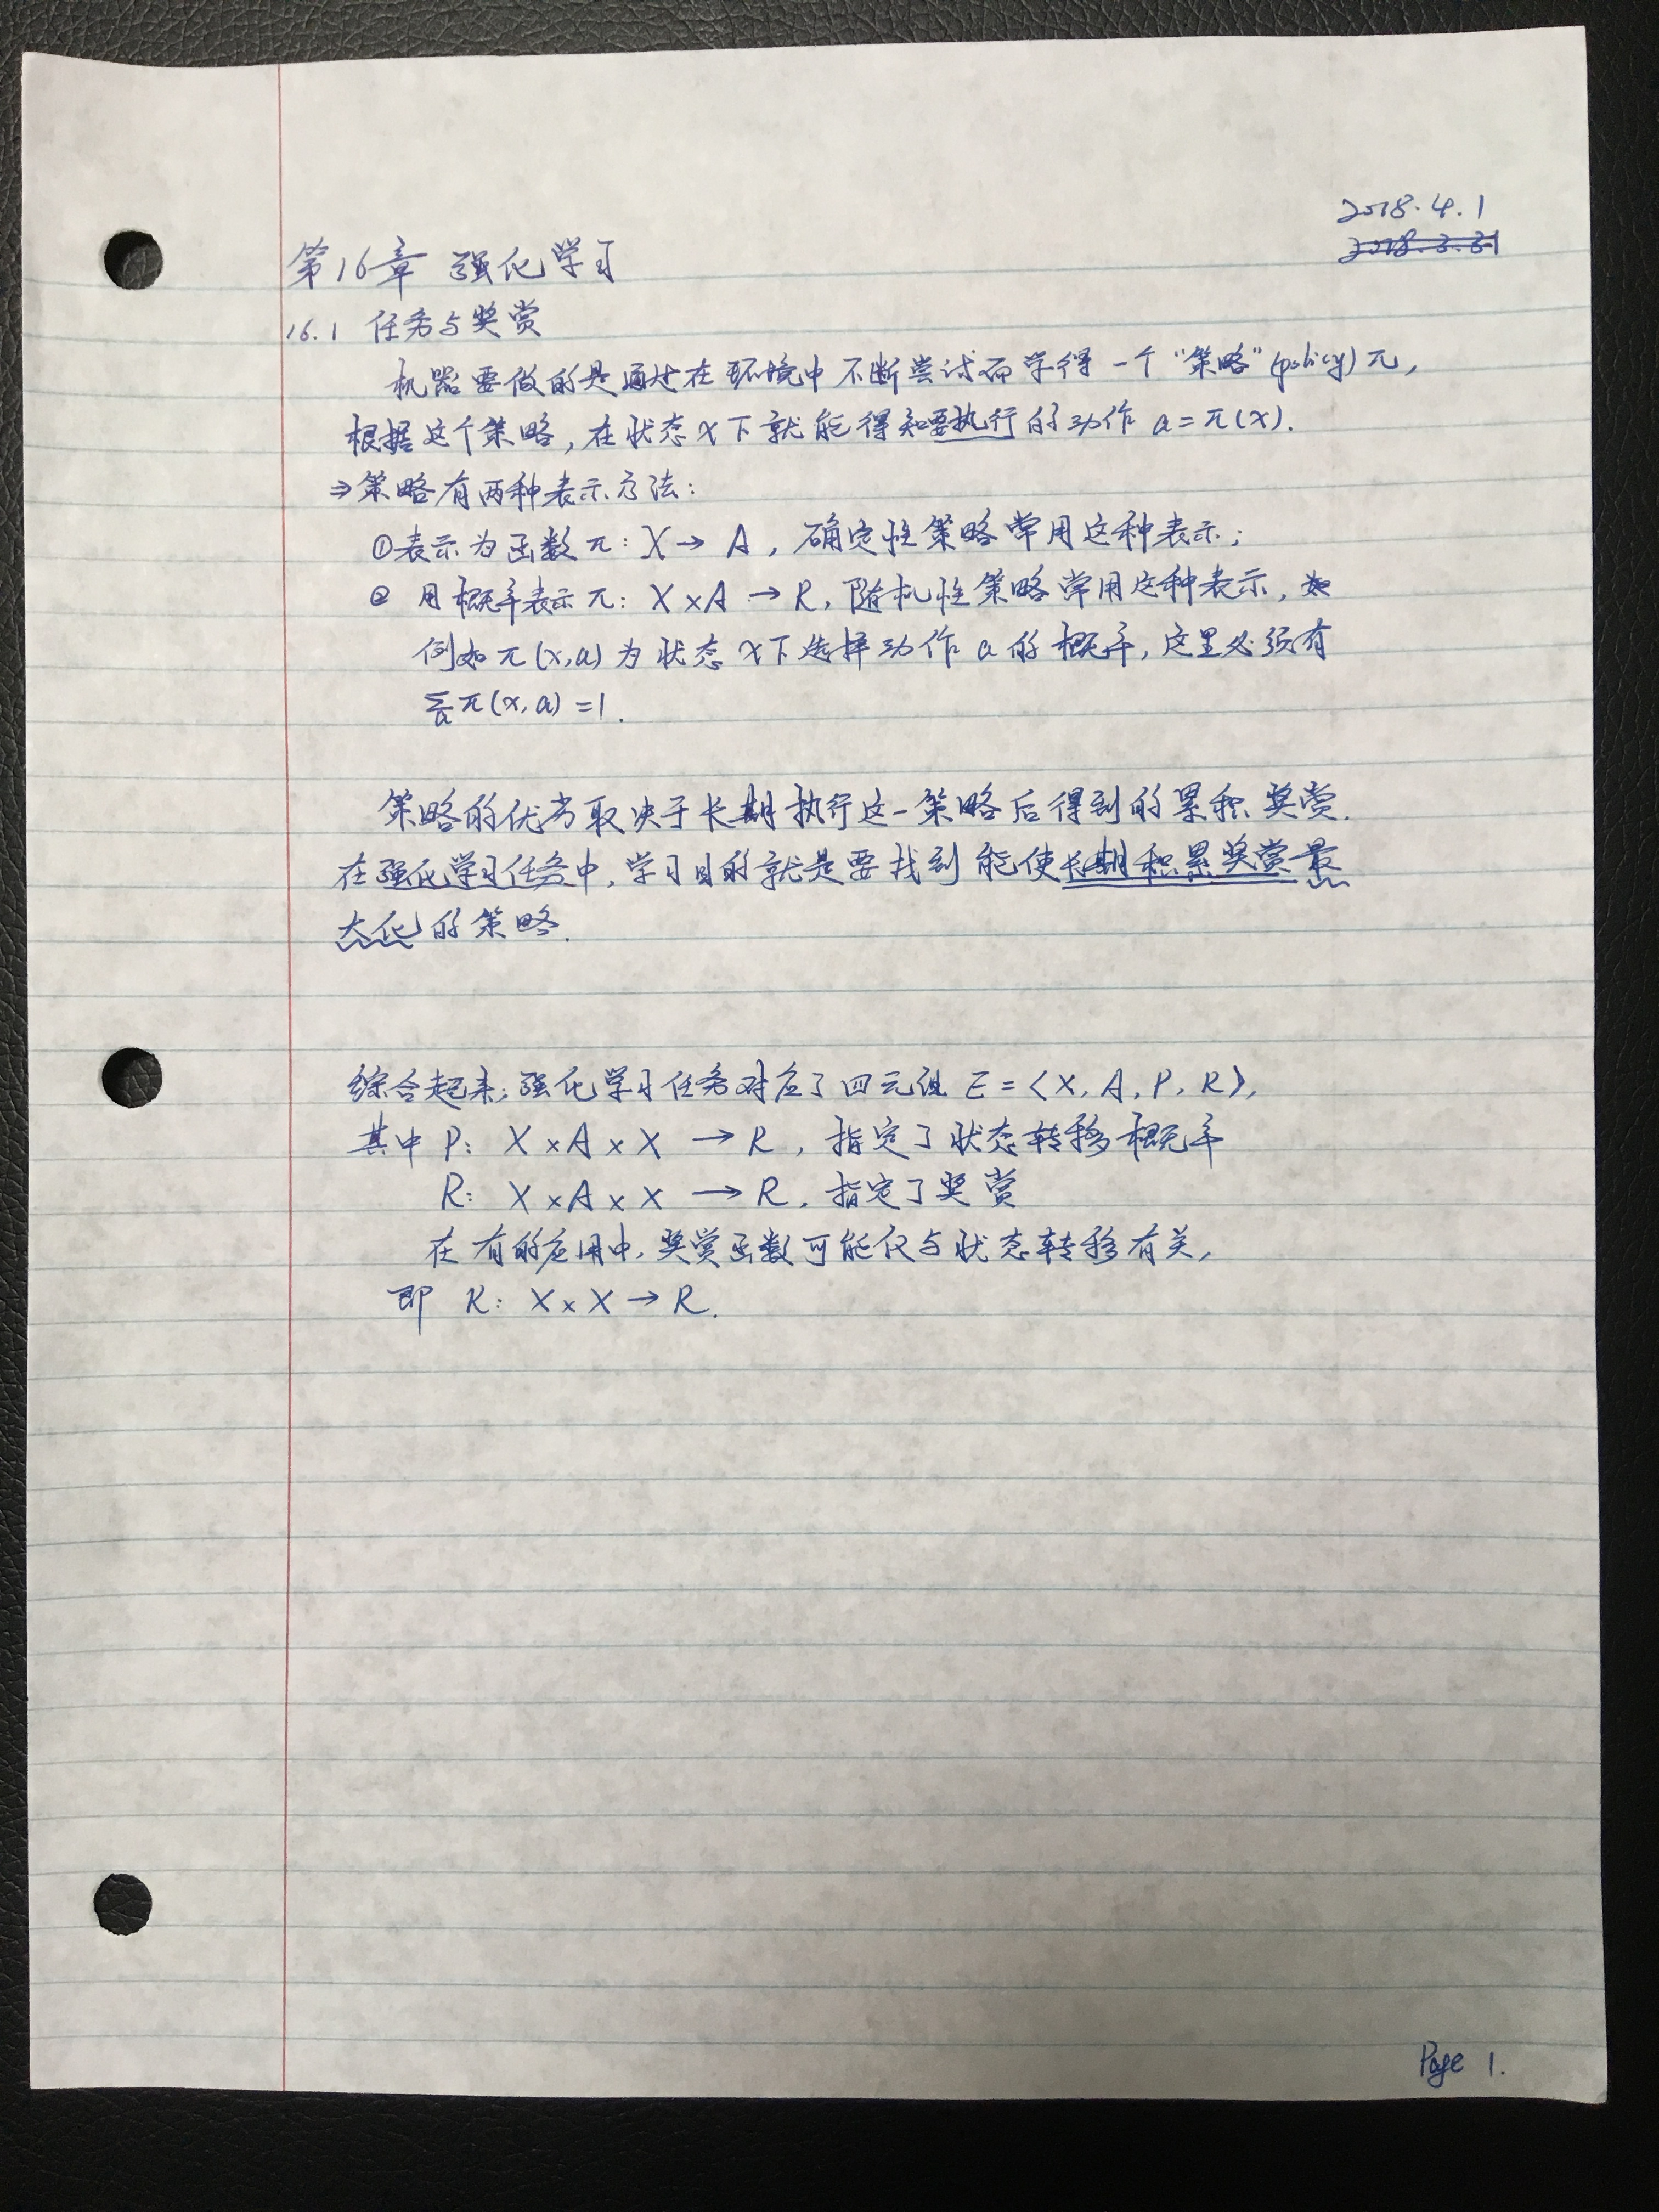 2018.4.1
2018.3.31
第16章 强化学习
16.1 任务与奖赏
机器要做的是通过在环境中不断尝试而学得一个“策略”(policy)π,
根据这个策略,在状态x下就能得知要执行的动作 a=π(x).
⇒策略有两种表示方法:
①表示为函数π: X→A, 确定性策略常用这种表示;
② 用概率表示π: X×A→R, 随机性策略常用这种表示,
例如π(x,a)为状态x下选择动作a的概率, 这里必须有
∑aπ(x,a)=1.
策略的优劣取决于长期执行这一策略后得到的累积奖赏.
在强化学习任务中,学习目的就是要找到能使长期积累奖赏最
大化的策略.
综合起来,强化学习任务对应了四元组 E=〈X, A, P, R〉,
其中 P: X×A×X→R, 指定了状态转移概率
R: X×A×X→R, 指定了奖赏
在有的应用中,奖赏函数可能仅与状态转移有关,
即 R: X×X→R.
Page 1.